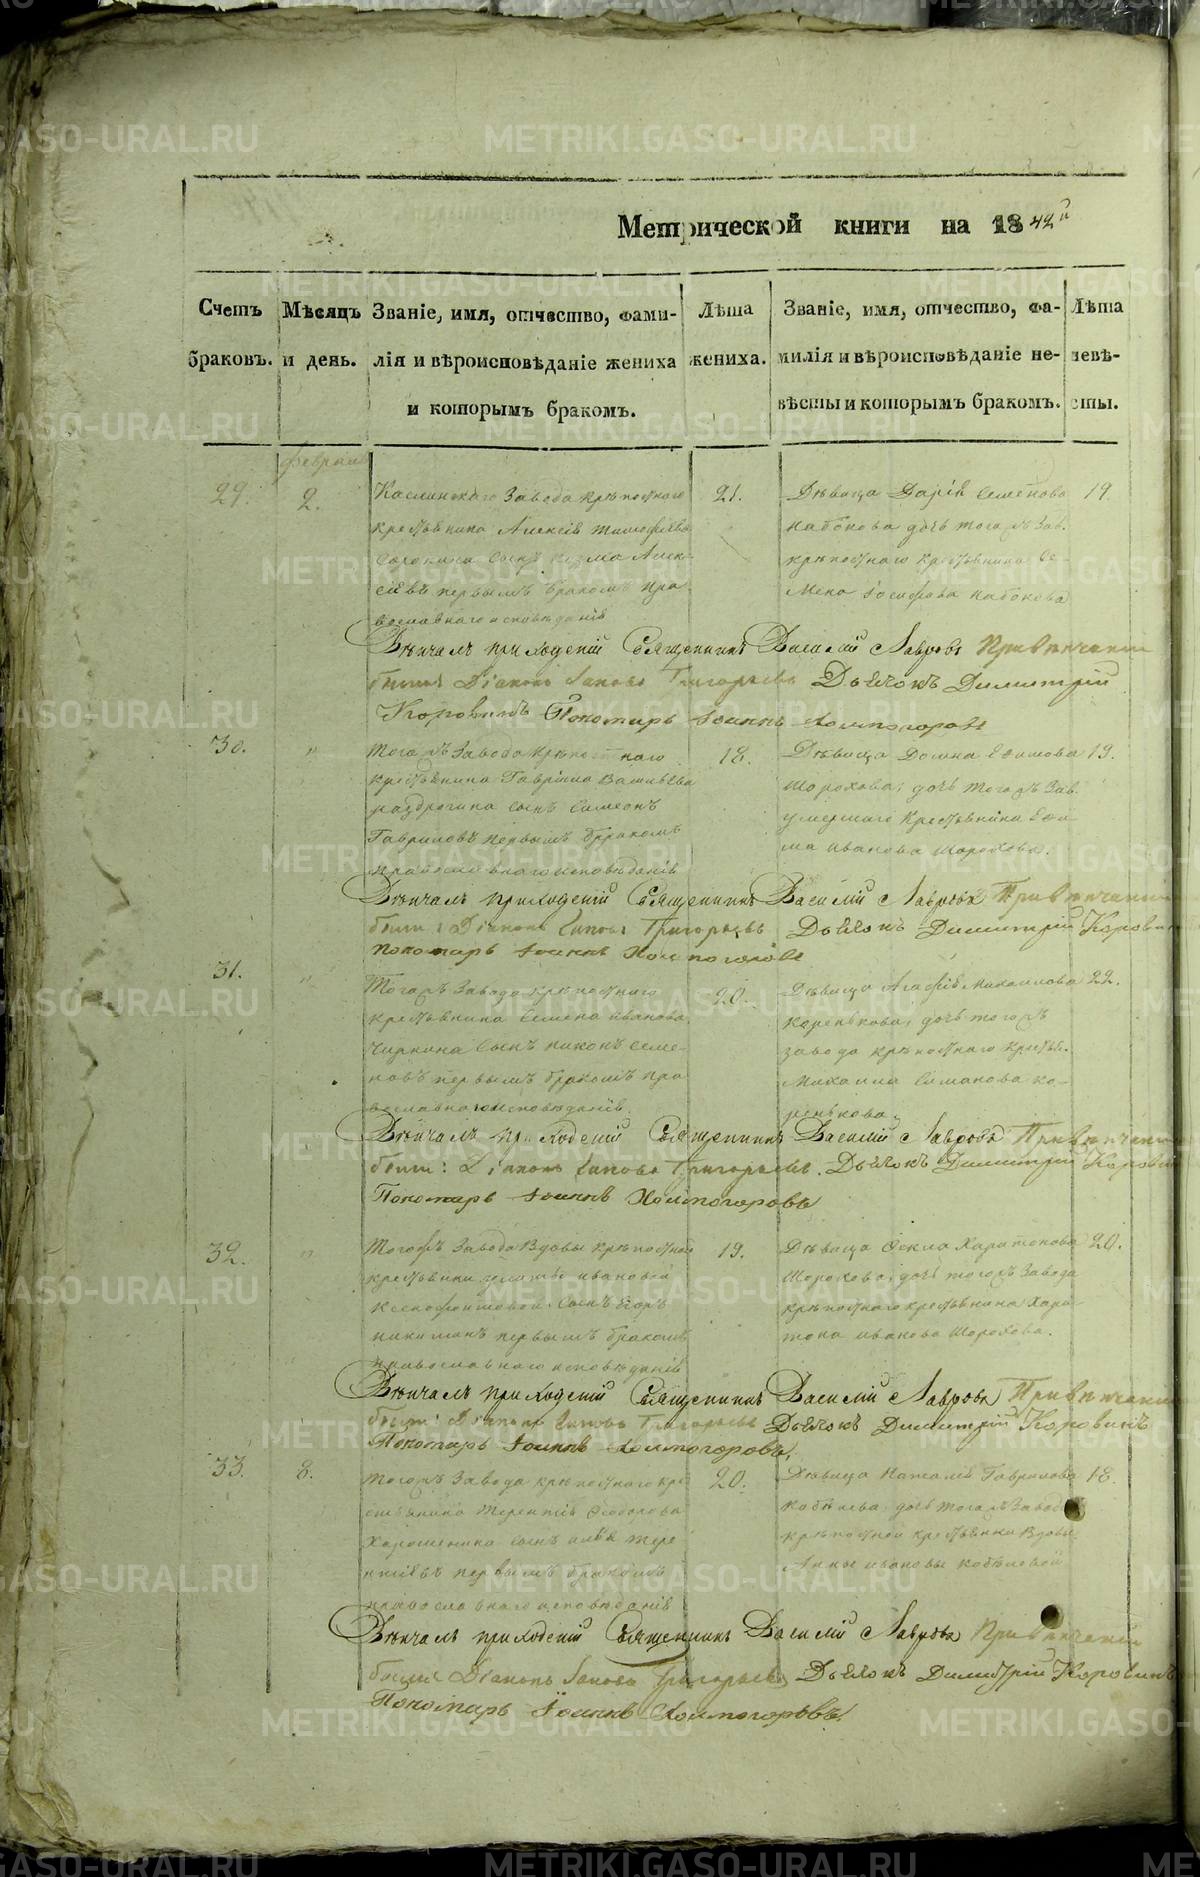 Метрической книги на 1842й
Счетъ браковъ.
Мѣсяцъ и день.
Званіе, имя, отчество, фамилія и вѣроисповѣданіе жениха и которымъ бракомъ.
Лѣта жениха.
Званіе, имя, отчество, фамилія и вѣроисповѣданіе невѣсты и которымъ бракомъ.
Лѣта невѣсты.
29.
2.
Каслинскаго Завода крѣпостнаго
крестьянина Алексія Тимофѣева
Сорокина сынъ Козма Алек-
сіевъ первымъ бракомъ пра
вославнаго исповѣданія
21.
Дѣвица Дарія Семенова
Набокова дочь тогожъ Зав.
крѣпостнаго крестьянина Се
мена Іосифова Набокова
19.
Вѣнчалъ приходскій Священникъ Василій Лавровъ Привѣнчаніи
были Діаконъ Іаковъ Григорьевъ Дьячокъ Димитрій
Коровинъ Пономарь Іоаннъ Холмогоровъ
30.
"
Тогожъ Завода крѣпостнаго
крестьянина Гавріила Васильева
сынъ Симеонъ
Гавриловъ первымъ бракомъ
православнаго исповѣданія
18.
Дѣвица Домна Ефимова
Шорохова, дочь тогожъ Зав.
умершаго крестьянина Ефи-
ма Иванова Шорохова.
19.
Вѣнчалъ приходскій Священникъ Василій Лавровъ Привѣнчаніи
были: Діаконъ Іаковъ Григорьевъ Дьячокъ Димитрій Коровинъ
Пономарь Іоаннъ Холмогоровъ
31.
"
Тогожъ Завода крѣпостнаго
крестьянина Семена Иванова
Чиркина сынъ Никонъ Семе-
новъ первымъ бракомъ пра
вославнаго исповѣданія.
20.
Дѣвица Агафія Михаилова
Коренькова, дочь тогожъ
завода крѣпостнаго крестья.
Михаила Симанова Ко-
ренькова.
22.
Вѣнчалъ приходскій Священникъ Василій Лавровъ Привѣнчаніи
были: Діаконъ Іаковъ Григорьевъ. Дьячокъ Димитрій Коровинъ
Пономарь Іоаннъ Холмогоровъ
32.
"
Тогожъ Завода Вдовы крѣпостной
Ивановой
Ксенофонтовой сынъ Егоръ
первымъ бракомъ
православнаго исповѣданія
19.
Дѣвица Фекла Харитонова
Шорохова, дочь тогожъ Завода
крѣпостнаго крестьянина Хари-
тона Иванова Шорохова.
20.
Вѣнчалъ приходскій Священникъ Василій Лавровъ Привѣнчаніи
были: Діаконъ Іаковъ Григорьевъ Дьячокъ Димитрій Коровинъ
Пономарь Іоаннъ Холмогоровъ.
33.
8.
Тогожъ Завода крѣпостнаго кре
стьянина Терентія Феодорова
сынъ Терен
тіевъ первымъ бракомъ
православнаго исповѣданія
20.
Дѣвица Наталія Гаврилова
Кобѣлева дочь тогожъ Завода
крѣпостной крестьянки Вдовы
Анны Ивановы Кобѣлевой
18.
Вѣнчалъ приходскій Священникъ Василій Лавровъ Привѣнчаніи
были Діаконъ Іаковъ Григорьевъ Дьячокъ Димитрій Коровинъ
Пономарь Іоаннъ Холмогоровъ.
METRIKI.GASO-URAL.RU